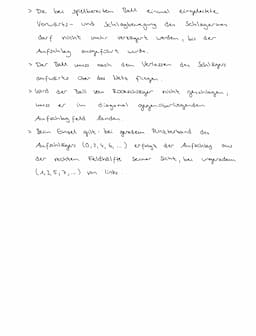 > Die bei spielbereitem Ball einmal eingeleitete
Vorwärts- und Schlagbewegung des Schlägerarms
darf nicht mehr verzögert werden, bis der
Aufschlag ausgeführt wurde.
> Der Ball muss nach dem Verlassen des Schlägers
aufwärts über das Netz fliegen.
> Wird der Ball vom Rückschläger nicht geschlagen,
muss er im diagonal gegenüberliegenden
Aufschlagfeld landen.
> Beim Einzel gilt: bei geradem Punktestand des
Aufschlägers (0,2,4,6,...) erfolgt der Aufschlag aus
der rechten Feldhälfte seiner Seite, bei ungeradem
(1,3,5,7,...) von links.